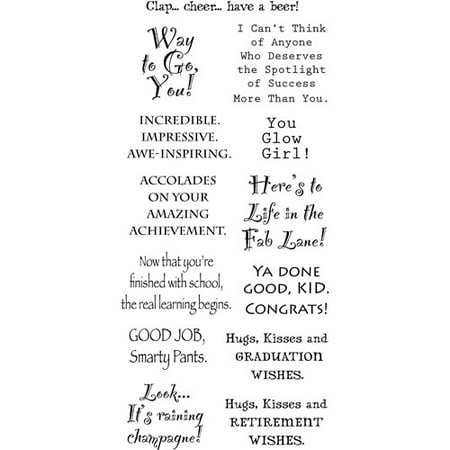 Clap... cheer... have a beer!
Way
to Go,
You!
I Can't Think
of Anyone
Who Deserves
the Spotlight
of Success
More Than You.
INCREDIBLE.
IMPRESSIVE.
AWE-INSPIRING.
You
Glow
Girl!
ACCOLADES
ON YOUR
AMAZING
ACHIEVEMENT.
Here's to
Life in the
Fab Lane!
Now that you're
finished with school,
the real learning begins.
YA DONE
GOOD, KID.
CONGRATS!
GOOD JOB,
Smarty Pants.
Hugs, Kisses and
GRADUATION
WISHES.
Look...
It's raining
champagne!
Hugs, Kisses and
RETIREMENT
WISHES.